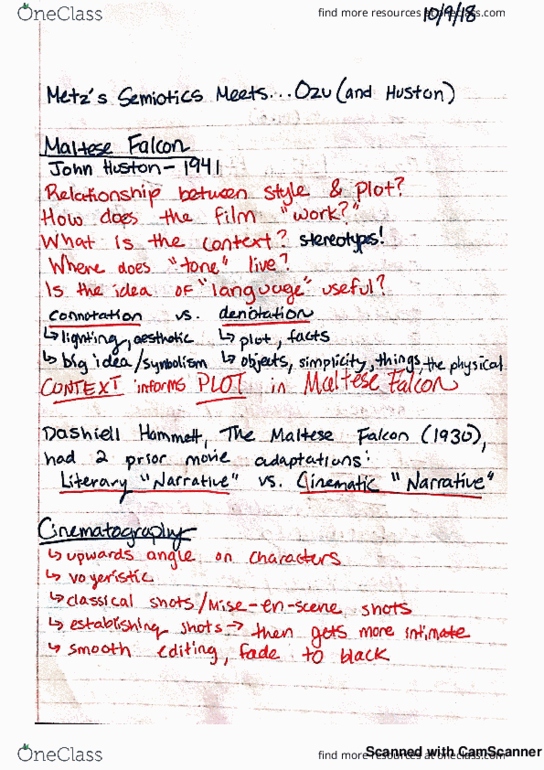 OneClass
find more resources at oneclass.com
10/9/18
Metz's Semiotics Meets...Ozu (and Huston)
Maltese Falcon
John Huston - 1941
Relationship between style & plot?
How does the film "work?"
What is the context? stereotypes!
Where does "tone" live?
Is the idea of "language" useful?
connotation vs. denotation
↳ lighting, aesthetic ↳ plot, facts
↳ big idea/symbolism ↳ objects, simplicity, things, the physical
CONTEXT informs PLOT in Maltese Falcon
Dashiell Hammett, The Maltese Falcon (1930),
had 2 prior movie adaptations:
Literary "Narrative" vs. Cinematic "Narrative"
Cinematography
↳ upwards angle on characters
↳ voyeristic
↳ classical shots/Mise-en-scene shots
↳ establishing shots → then gets more intimate
↳ smooth editing, fade to black
OneClass
find more resources at oneclass.com
Scanned with CamScanner